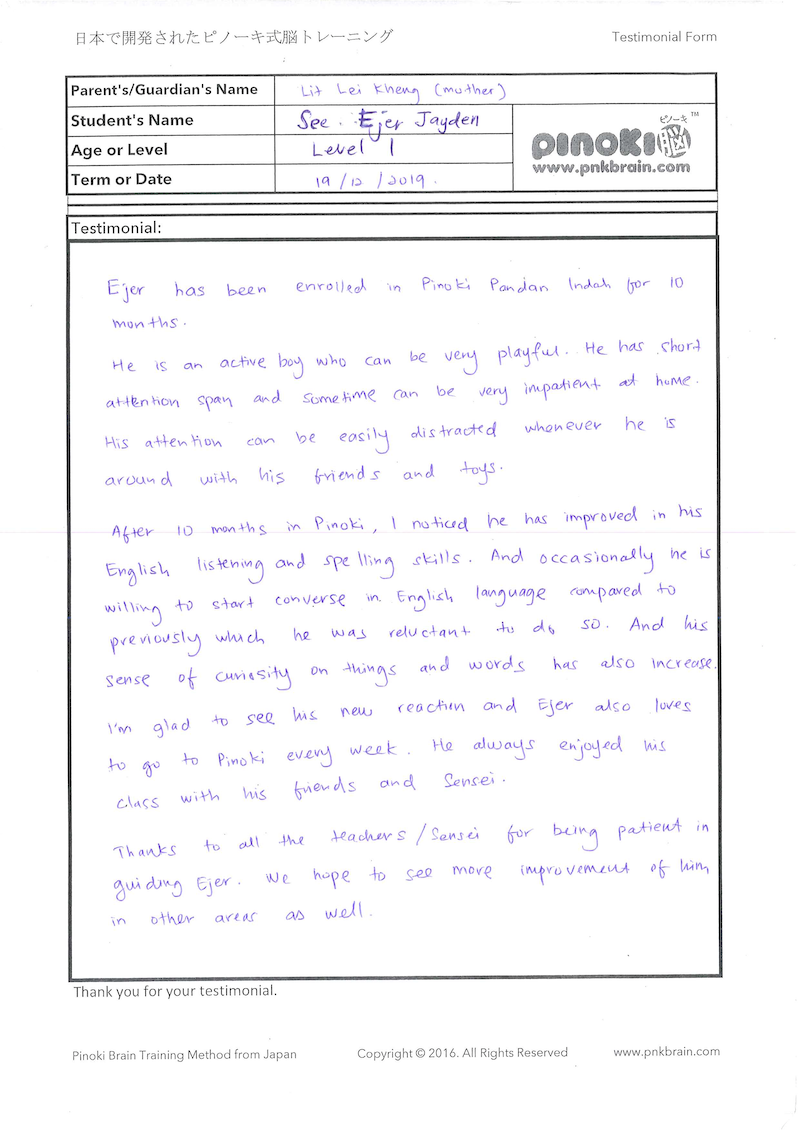 日本で開発されたピノーキ式脳トレーニング
Testimonial Form
Parent's/Guardian's Name Lit Lei Kheng (mother)
Student's Name See. Ejer Jayden
Age or Level Level 1
Term or Date 19/12/2019.
ピノーキ TM
PINOKI脳
www.pnkbrain.com
Testimonial:
Ejer has been enrolled in Pinoki Pandan Indah for 10
months.
He is an active boy who can be very playful. He has short
attention span and sometime can be very impatient at home.
His attention can be easily distracted whenever he is
around with his friends and toys.
After 10 months in Pinoki, I noticed he has improved in his
English listening and spelling skills. And occasionally he is
willing to start converse in English language compared to
previously which he was reluctant to do so. And his
sense of curiosity on things and words has also increase.
I'm glad to see his new reaction and Ejer also loves
to go to Pinoki every week. He always enjoyed his
class with his friends and Sensei.
Thanks to all the teachers/Sensei for being patient in
guiding Ejer. We hope to see more improvement of him
in other areas as well.
Thank you for your testimonial.
Pinoki Brain Training Method from Japan Copyright © 2016. All Rights Reserved www.pnkbrain.com